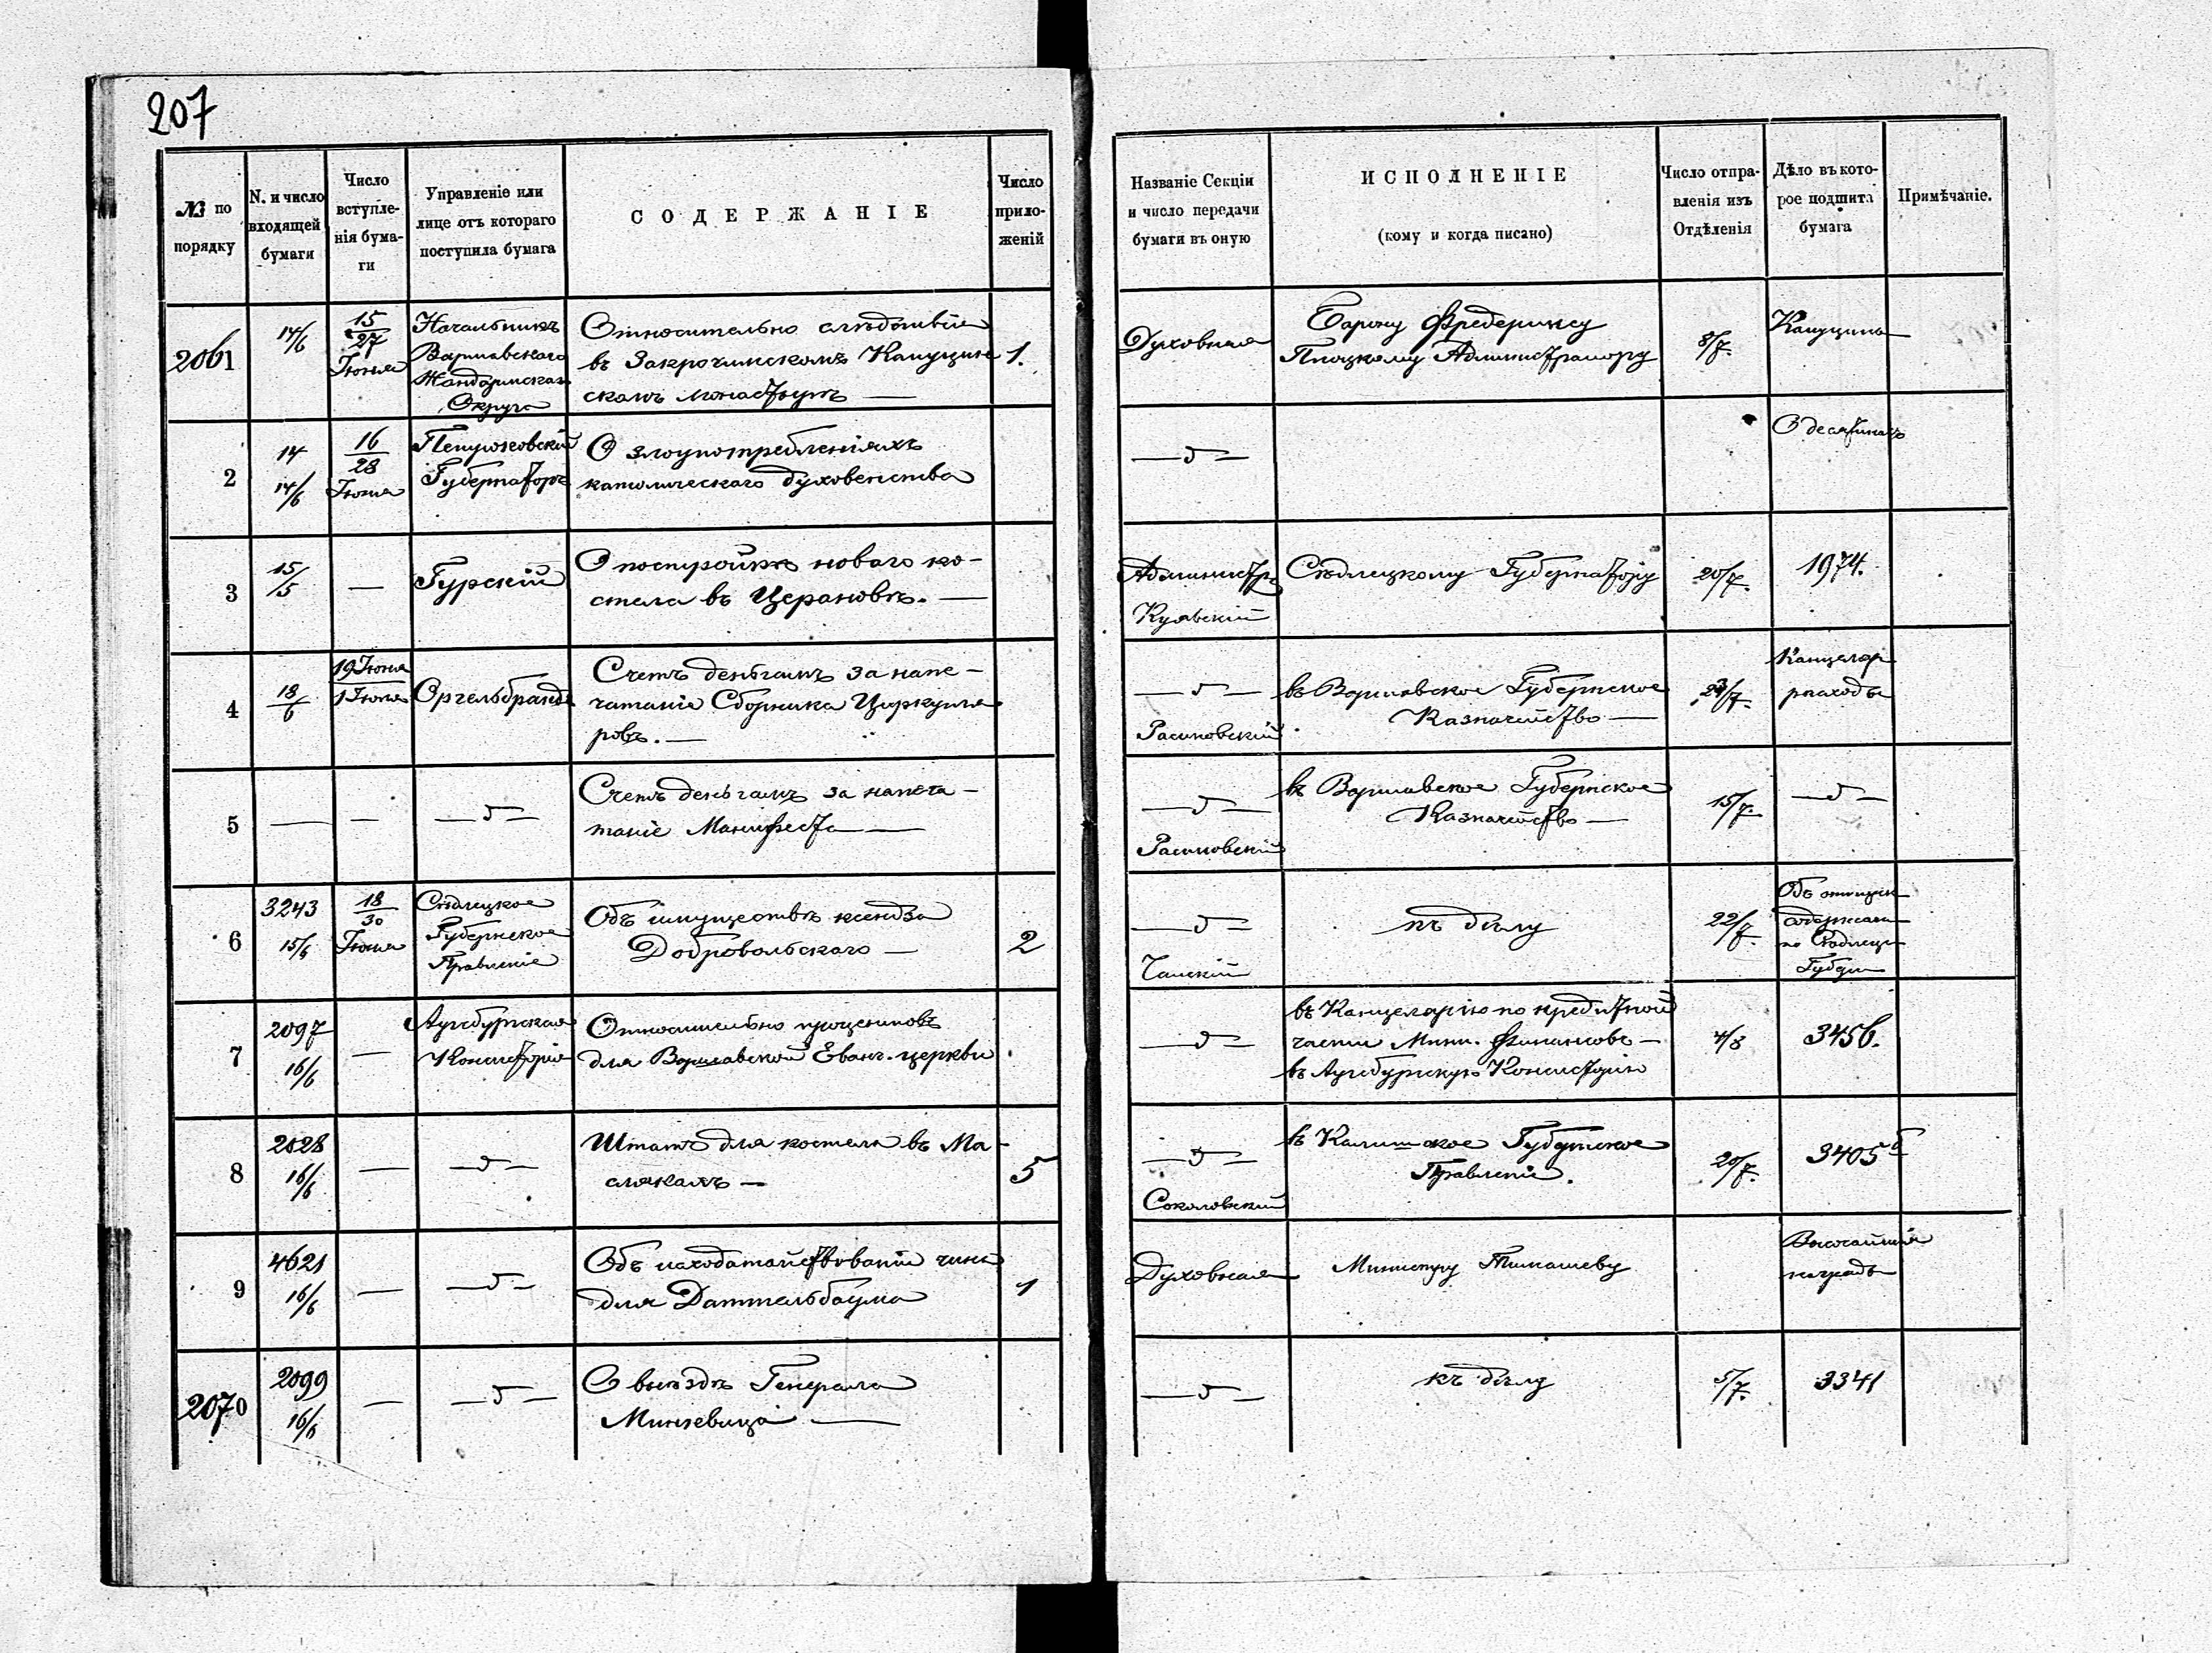 207
№ по порядку
N. и число входящей бумаги
Число вступле-нія бума-ги
Управленіе или лице отъ котораго поступила бумага
СОДЕРЖАНІЕ
Число прило-женій
Названіе Секціи и число передачи бумаги въ оную
ИСПОЛНЕНІЕ
(кому и когда писано)
Число отпра-вленія изъ Отдѣленія
Дѣло въ кото-рое подшита бумага
Примѣчаніе.
2061
14/6
15/27 Іюня
Начальникъ
Варшавскаго
Жандармскаго
Округа
Относительно слѣдствія
въ Закрочимскомъ Капуцин
скомъ монастырѣ —
1.
Духовная
Барону Фредериксу
Плоцкому Администратору
8/7.
Капуцины
2
14
14/6
16/28 Іюня
Губернаторъ
О злоупотребленіяхъ
католическаго духовенства
О десятинахъ
3
15/5
—
Гурскій
О постройкѣ новаго ко-
стела въ Церановѣ. —
Администр.
Куявскій
Сѣдлецкому Губернатору
20/7.
1974.
4
18/6
19 Іюня
1 Іюля
Оргельбрандъ
Счетъ деньгамъ за напе-
чатаніе Сборника Циркуля
ровъ. —
въ Варшавское Губернское
Казначейство —
Канцеляр
расходы
5
—
—
Счетъ деньгамъ за напеча-
таніе Манифеста —
въ Варшавское Губернское
Казначейство —
15/7.
6
3243
15/6
18/30 Іюня
Сѣдлецкое
Губернское
Правленіе
Объ имуществѣ ксендза
Добровольскаго —
2
къ дѣлу
22/7.
Губерн
7
2097
16/6
—
Аугсбургская
Консисторія
Относительно процентовъ
для Варшавской Еванг. церкви
въ Канцелярію по кредитной
части Мин. Финансовъ —
въ Аугсбургскую Консисторію
4/8
3456.
8
2028
16/6
—
Штатъ для костела въ Ма-
5
Соколовскій
въ Калишское Губернское
Правленіе.
20/7.
3405 б
9
4621
16/6
—
Объ исходатайствованіи чина
для Даттельбаума
1
Духовная
Министру Тимашеву
Высочайшія
награды
2070
2099
16/6
—
О выѣздѣ Генерала
Минкевица —
къ дѣлу
5/7.
3341